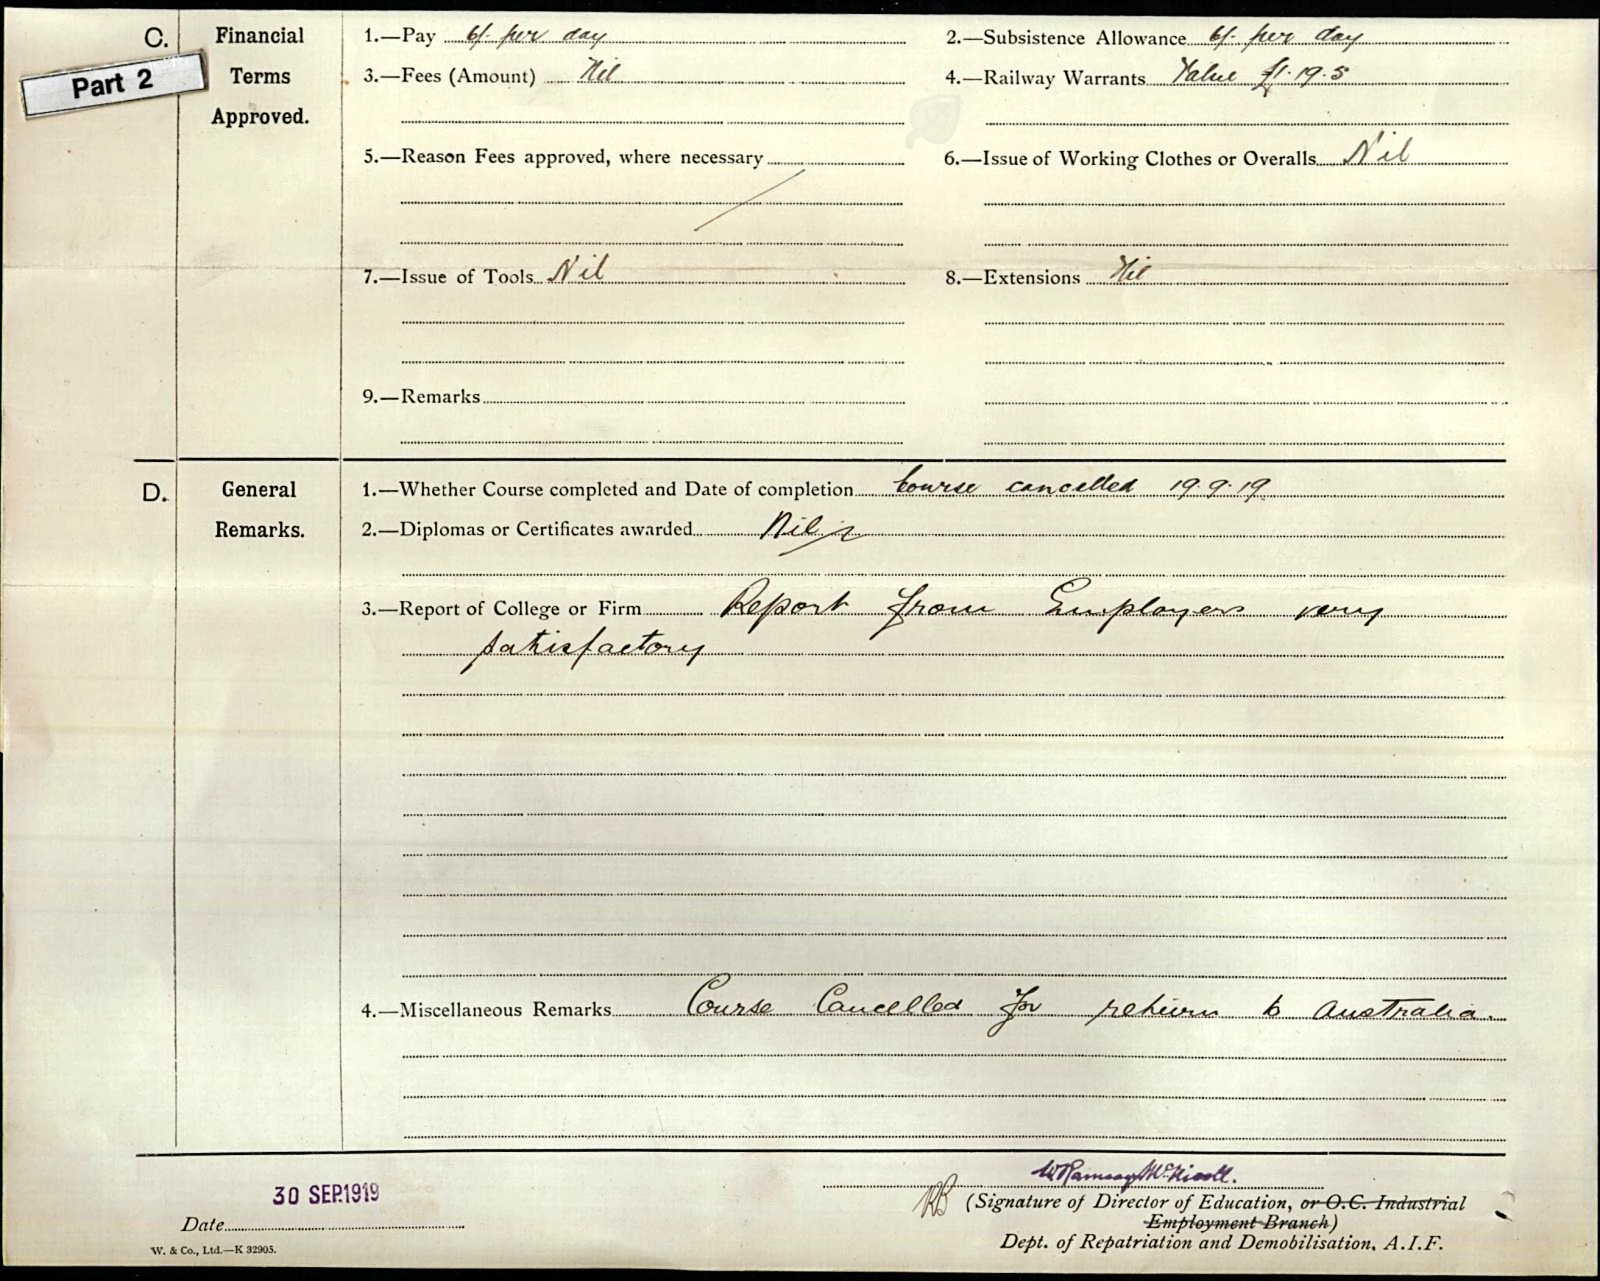 C. Financial Terms Approved.
Part 2
1.—Pay 6/- per day
2.—Subsistence Allowance 6/- per day
3.—Fees (Amount) Nil
4.—Railway Warrants Value £1.19.5
5.—Reason Fees approved, where necessary
6.—Issue of Working Clothes or Overalls Nil
7.—Issue of Tools Nil
8.—Extensions Nil
9.—Remarks
D. General Remarks.
1.—Whether Course completed and Date of completion Course cancelled 19.9.19
2.—Diplomas or Certificates awarded Nil
3.—Report of College or Firm Report from Employers very
satisfactory
4.—Miscellaneous Remarks Course Cancelled for return to Australia.
30 SEP 1919
Date
W. & Co., Ltd.—K 32905.
W Ramsay McNicoll.
RB (Signature of Director of Education, or O.C. Industrial
Employment Branch)
Dept. of Repatriation and Demobilisation, A.I.F.